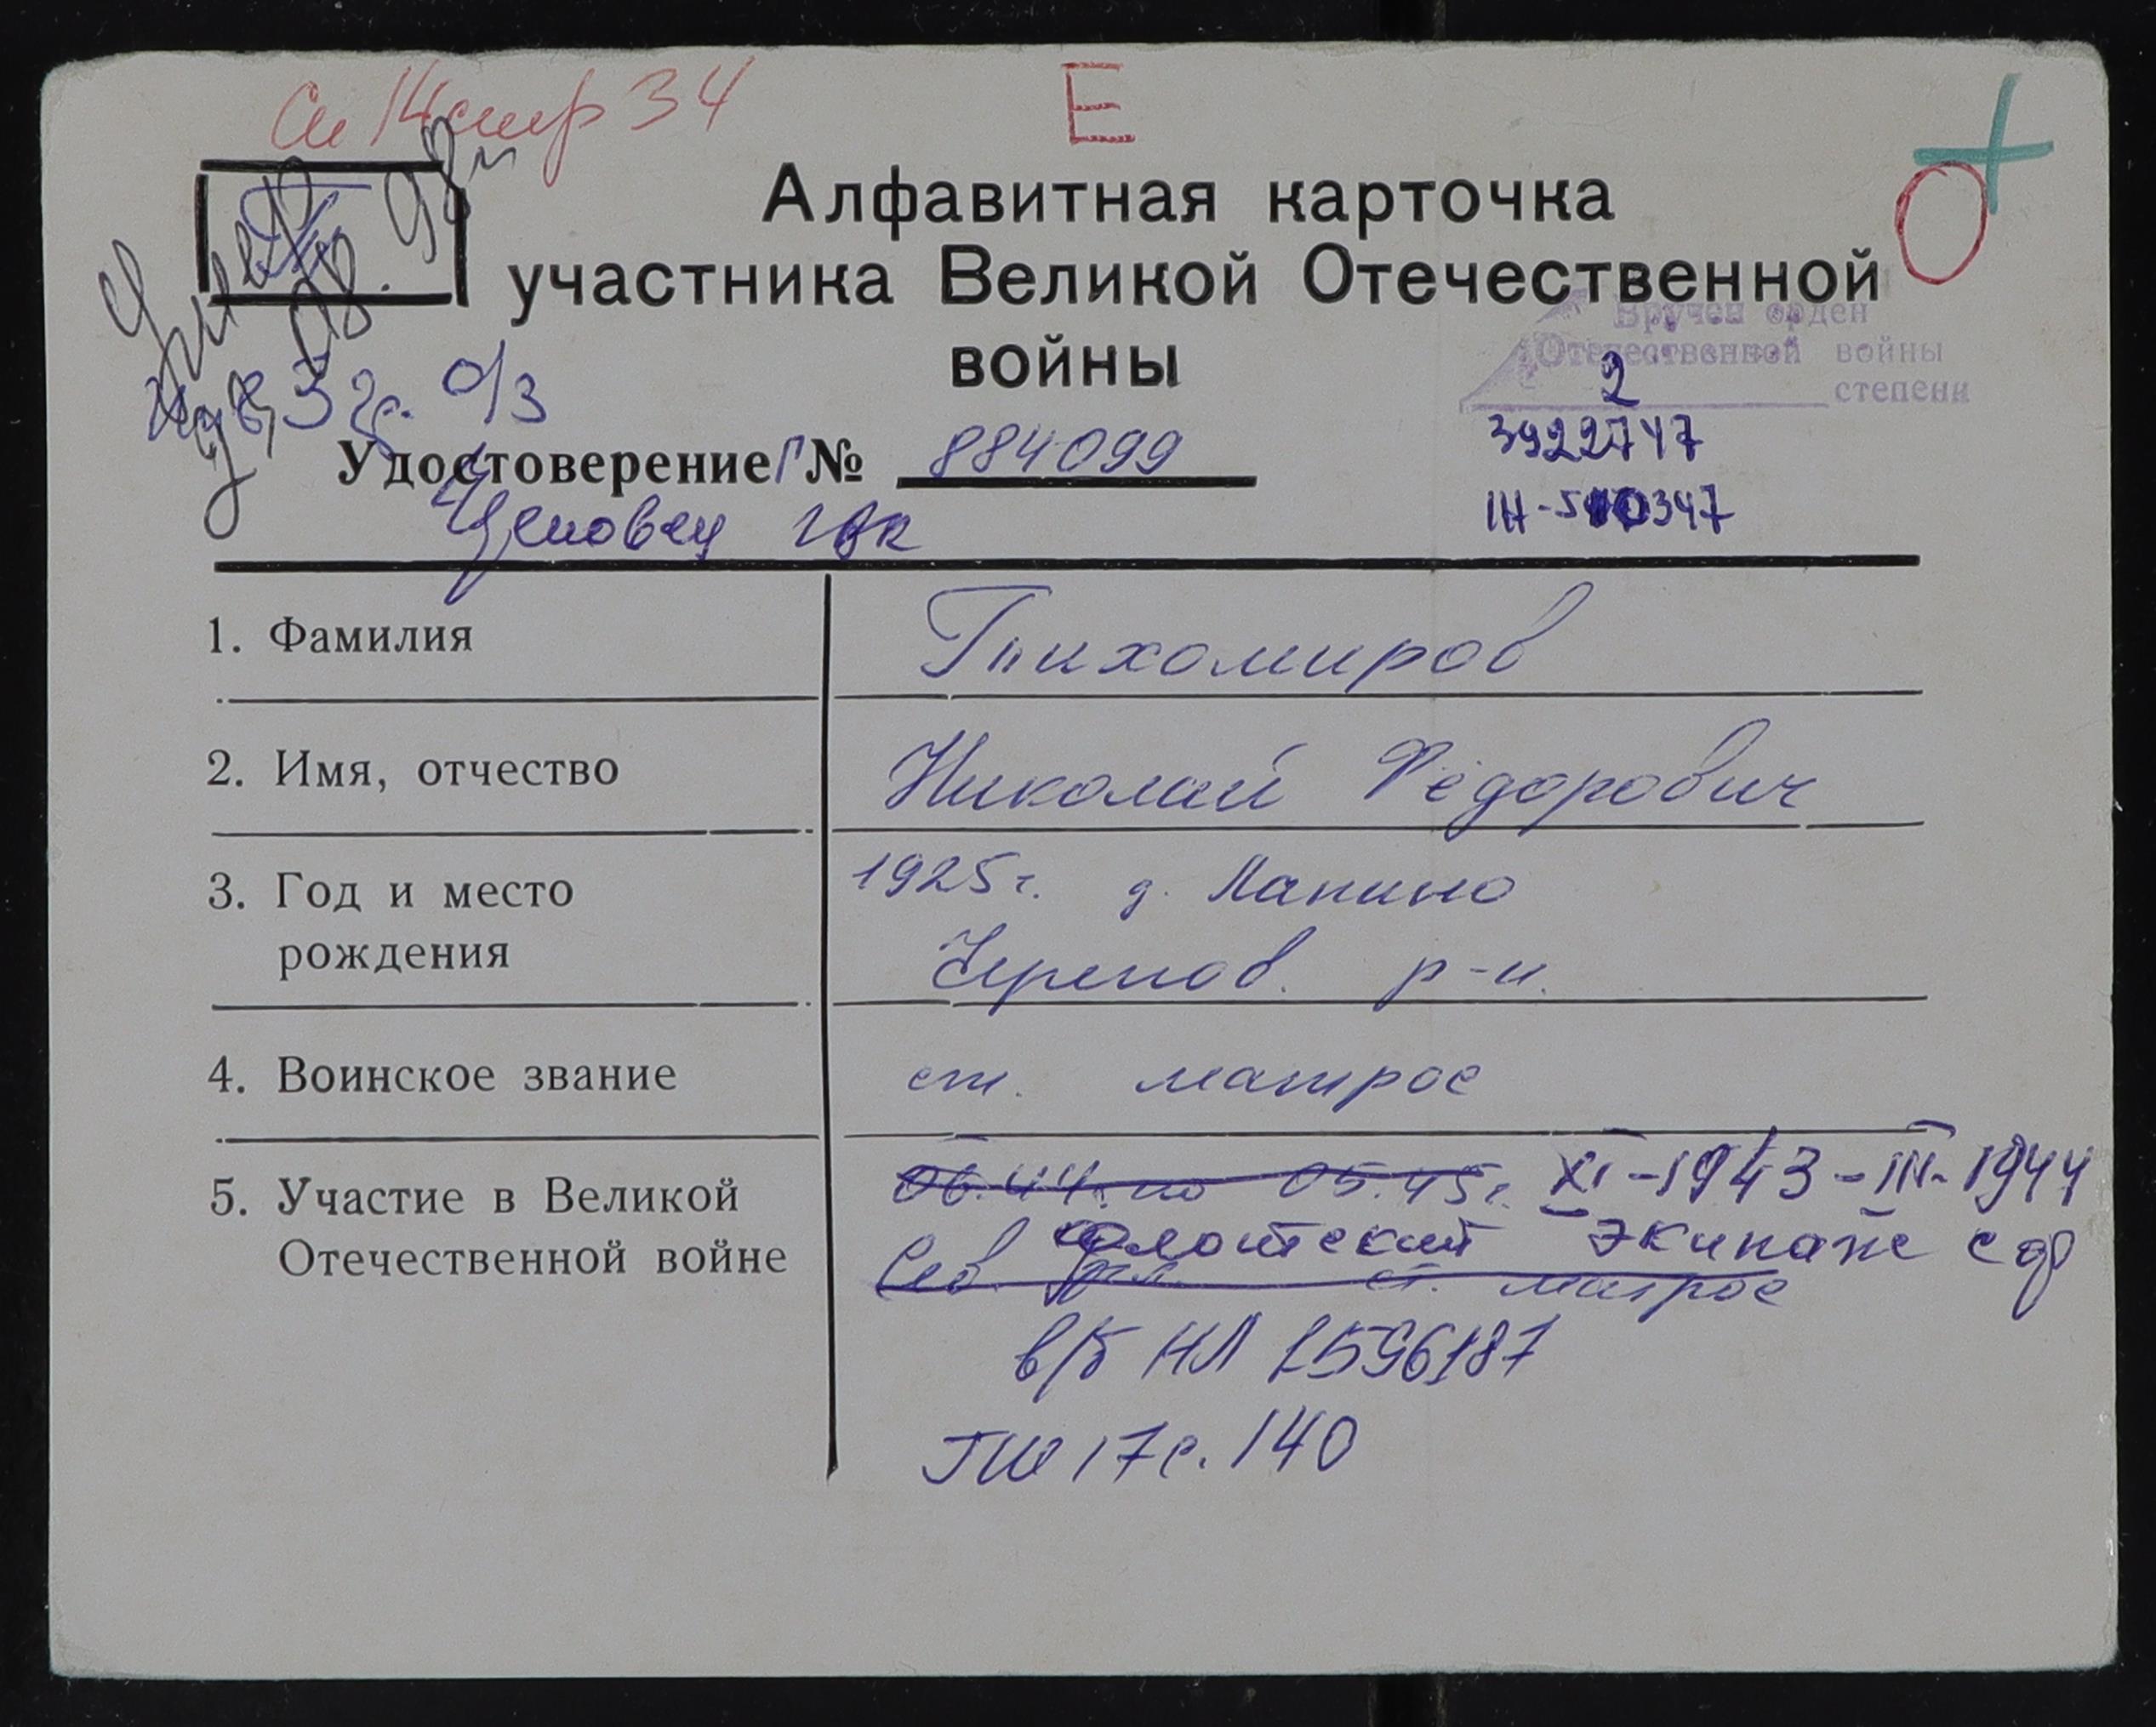 Сп 14 стр 34
Е
Алфавитная карточка
участника Великой Отечественной
войны
Вручен орден
Отечественной войны
2 степени
3922747
о/з
Удостоверение Г № 884099
ГВК
1. Фамилия Тихомиров
2. Имя, отчество Николай Фёдорович
3. Год и место рождения 1925г. д. Лапино
Черепов. р-н.
4. Воинское звание ст. матрос
5. Участие в Великой Отечественной войне 06.44. по 05.45г. XI-1943-III-1944
Флотский экипаж сф
Сев. фл. ст. матрос
в/б НЛ 1596187
ГШ 17 с. 140